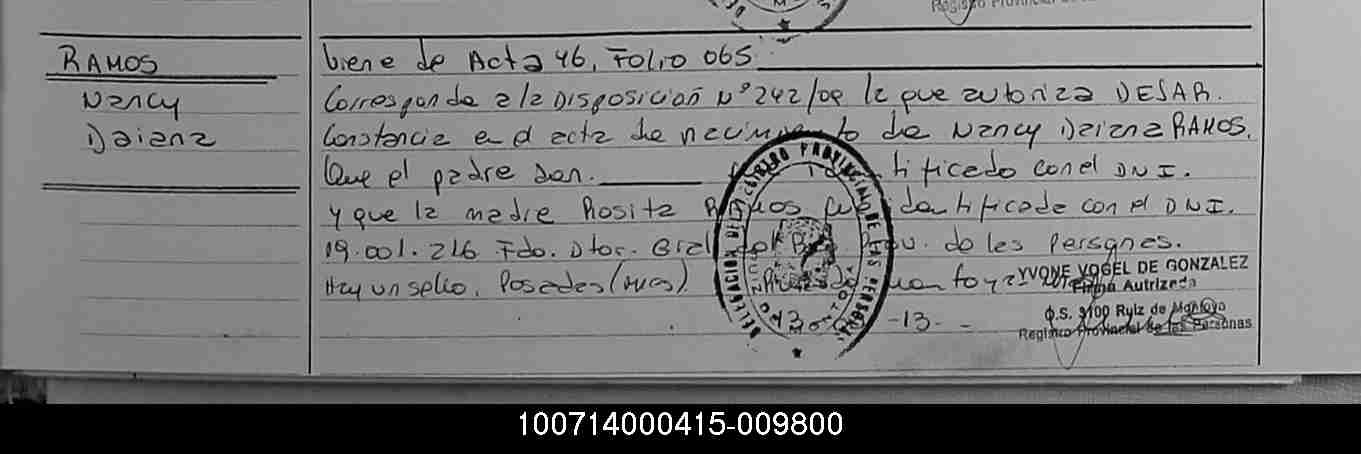 Registro Provincial de
RAMOS
Nancy
Daiana
Viene de Acta 46, Folio 065
Corresponde a la Disposición Nº 242/09 la que autoriza DEJAR.
Constancia en el acta de nacimiento de Nancy Daiana RAMOS.
Que el padre don. ______ tificado con el DNI.
y que la madre Rosita Ramos fue identificada con el DNI.
19.001.216 Fdo. Dtor. Gral del Reg. Prov. de las Personas.
Hay un sello. Posadas (Mnes). Ruiz de Montoya
13- -13-
DELEGACION DEL REGISTRO PROVINCIAL DE LAS PERSONAS
YVONE VOGEL DE GONZALEZ
Firma Autrizada
O.S. 3100 Ruiz de Montoya
Registro Provincial de las Personas
100714000415-009800